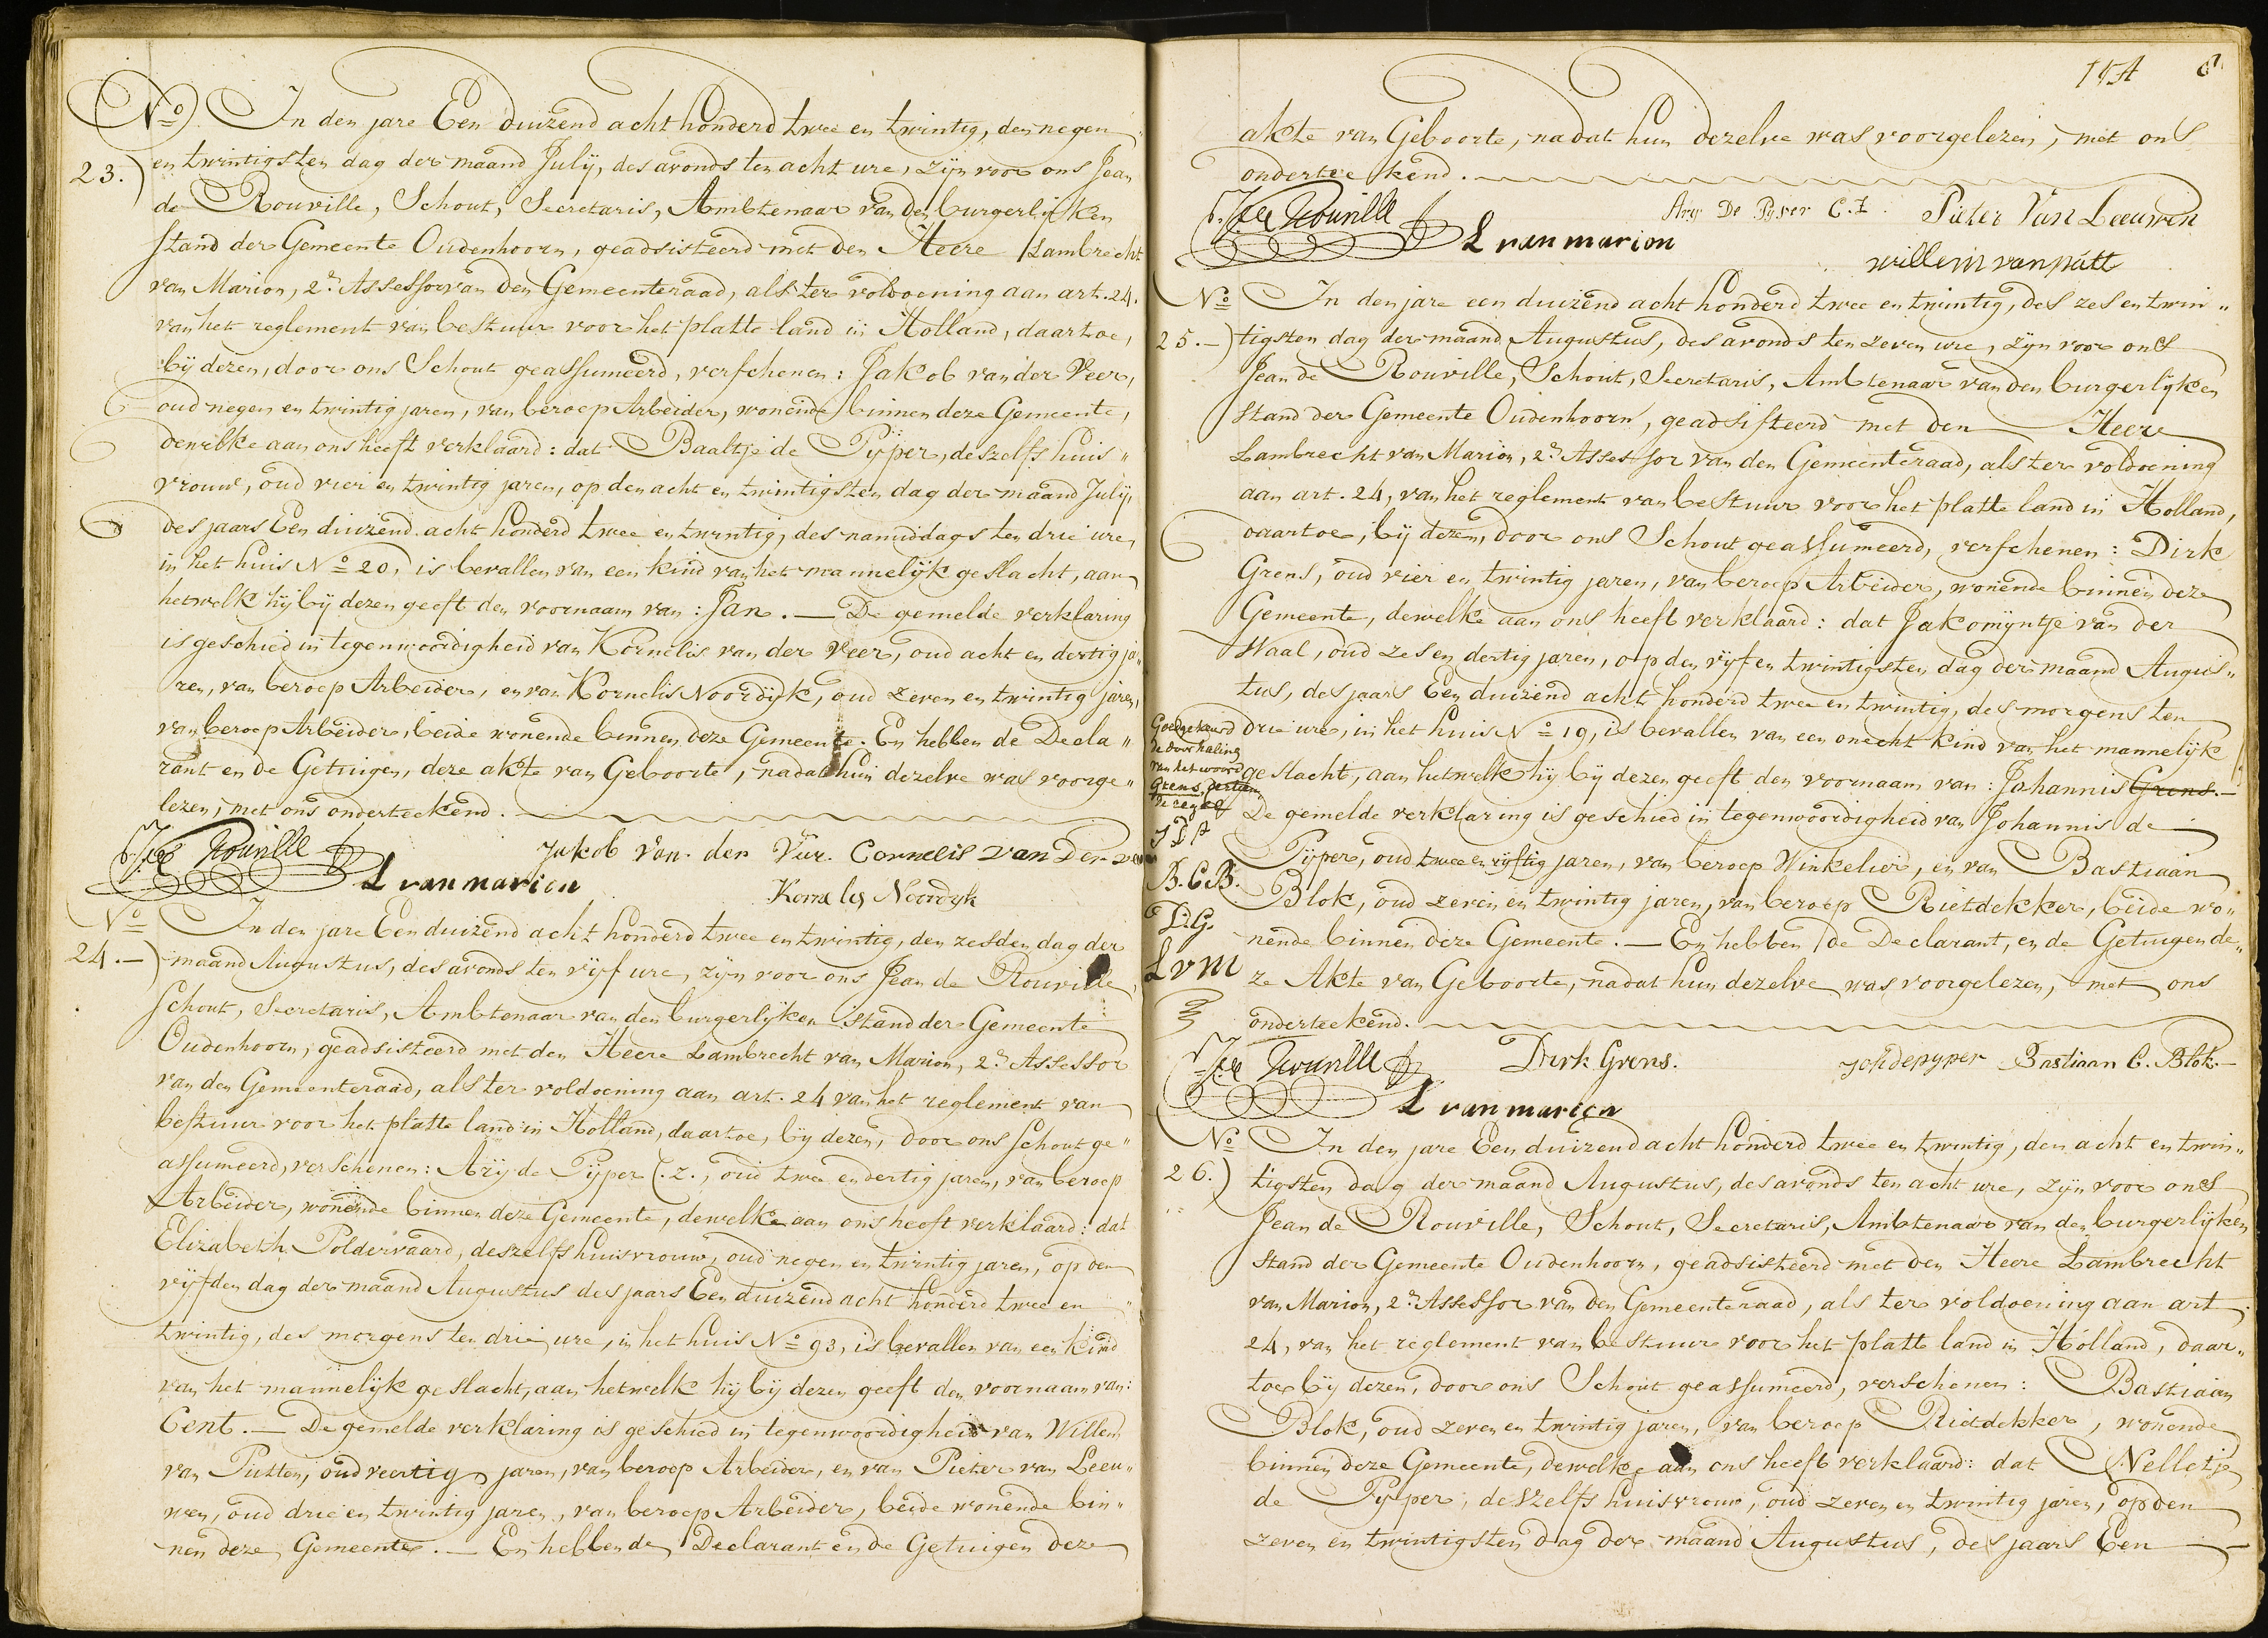 No. In den jare Een duizend acht honderd twee en twintig, den negen
23.) en twintigsten dag der maand Julij, des avonds ten acht ure, zijn voor ons Jean
de Rouville, Schout, Secretaris, Ambtenaar van den burgerlijken
stand der Gemeente Oudenhoorn, geadsisteerd met den Heere Lambrecht
van Marion, 2e Assessor van den Gemeenteraad, als ter voldoening aan art. 24.
van het reglement van bestuur voor het platte land in Holland, daartoe,
bij dezen, door ons Schout geassumeerd, verschenen: Jakob van der Veer,
oud negen en twintig jaren, van beroep Arbeider, wonende binnen deze Gemeente,
dewelke aan ons heeft verklaard: dat Baaltje de Pijper, deszelfs huis„
vrouw, oud vier en twintig jaren, op den acht en twintigsten dag der maand Julij,
des jaars Een duizend acht honderd twee en twintig, des namiddags ten drie ure,
in het huis No 20, is bevallen van een kind van het mannelijk geslacht, aan
hetwelk hij bij dezen geeft den voornaam van: Jan. — De gemelde verklaring
is geschied in tegenwoordigheid van Kornelis van der Veer, oud acht en dertig ja„
ren, van beroep Arbeider, en van Kornelis Noordijk, oud zeven en twintig jaren,
van beroep Arbeider, beide wonende binnen deze Gemeente. En hebben de Decla„
rant en de Getuigen, deze akte van Geboorte, nadat hun dezelve was voorge„
lezen, met ons onderteekend.
J. de Rouville Jakob Van der Veer. Cornelis van Der veer
L van marion Kornelis Noordyk
No In den jare Een duizend acht honderd twee en twintig, den zesden dag der
24.—) maand Augustus, des avonds ten vijf ure, zijn voor ons Jean de Rouville,
Schout, Secretaris, Ambtenaar van den burgerlijken stand der Gemeente
Oudenhoorn, geadsisteerd met den Heere Lambrecht van Marion, 2e Assessor
van den Gemeenteraad, als ter voldoening aan art. 24 van het reglement van
bestuur voor het platte land in Holland, daartoe, bij dezen, door ons Schout ge„
assumeerd, verschenen: Arij de Pijper C.z., oud twee en dertig jaren, van beroep
Arbeider, wonende binnen deze Gemeente, dewelke aan ons heeft verklaard: dat
Elizabeth Poldervaard, deszelfs huisvrouw, oud negen en twintig jaren, op den
vijfden dag der maand Augustus des jaars Een duizend acht honderd twee en
twintig, des morgens ten drie ure, in het huis No 93, is bevallen van een kind
van het mannelijk geslacht, aan hetwelk hij bij dezen geeft den voornaam van:
Cent. — De gemelde verklaring is geschied in tegenwoordigheid van Willem
van Putten, oud veertig jaren, van beroep Arbeider, en van Pieter van Leeu„
wen, oud drie en twintig jaren, van beroep Arbeider, beide wonende bin„
nen deze Gemeente. — En hebben de Declarant en de Getuigen deze
akte van Geboorte, nadat hun dezelve was voorgelezen, met ons
onderteekend.
J. de Rouville Ary De Pyper C.Z. Pieter Van Leeuwen
L van marion willem van putt
No In den jare een duizend acht honderd twee en twintig, des zes en twin„
25.—) tigsten dag der maand Augustus, des avonds ten zeven ure, zijn voor ons
Jean de Rouville, Schout, Secretaris, Ambtenaar van den burgerlijken
stand der Gemeente Oudenhoorn, geadsisteerd met den Heere
Lambrecht van Marion, 2e Assessor van den Gemeenteraad, als ter voldoening
aan art. 24, van het reglement van bestuur voor het platte land in Holland,
daartoe, bij dezen, door ons Schout geassumeerd, verschenen: Dirk
Grens, oud vier en twintig jaren, van beroep Arbeider, wonende binnen deze
Gemeente, dewelke aan ons heeft verklaard: dat Jakomijntje van der
Waal, oud zes en dertig jaren, op den vijf en twintigsten dag der maand Augus„
tus, des jaars Een duizend acht honderd twee en twintig, des morgens ten
drie ure, in het huis No 19, is bevallen van een onecht kind van het mannelijk
geslacht, aan hetwelk hij bij dezen geeft den voornaam van: Johannis Grens.—
De gemelde verklaring is geschied in tegenwoordigheid van Johannis de
Pijper, oud twee en vijftig jaren, van beroep Winkelier, en van Bastiaan
Blok, oud zeven en twintig jaren, van beroep Rietdekker, beide wo„
nende binnen deze Gemeente. — En hebben de Declarant, en de Getuigen de„
ze Akte van Geboorte, nadat hun dezelve was voorgelezen, met ons
onderteekend.
Goedgekeurd
de doorhaling
van het woord
Grens, dertien
de regel
JDP
B.C.B.
D.G.
LvM
J. de Rouville Dirk Grens. Joh depyper Bastiaan C. Blok.—
L van marion
No In den jare Een duizend acht honderd twee en twintig, den acht en twin„
26.) tigsten dag der maand Augustus, des avonds ten acht ure, zijn voor ons
Jean de Rouville, Schout, Secretaris, Ambtenaar van den burgerlijken
stand der Gemeente Oudenhoorn, geadsisteerd met den Heere Lambrecht
van Marion, 2e Assessor van den Gemeenteraad, als ter voldoening aan art.
24, van het reglement van bestuur voor het platte land in Holland, daar„
toe bij dezen, door ons Schout geassumeerd, verschenen: Bastiaan
Blok, oud zeven en twintig jaren, van beroep Rietdekker, wonende
binnen deze Gemeente, dewelke aan ons heeft verklaard: dat Nelletje
de Pijper, deszelfs huisvrouw, oud zeven en twintig jaren, op den
zeven en twintigsten dag der maand Augustus, des jaars Een